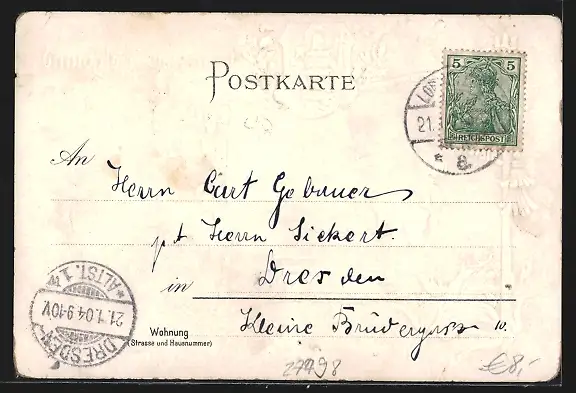 POSTKARTE
5 5
REICHSPOST
21.
* 8.
An Herrn Curt Gebauer
p. A. Herrn Sickert.
in Dresden
Kleine Brüdergasse 10.
Wohnung
(Strasse und Hausnummer)
DRESDEN
* ALTST. 1.
21.1.04.9-10V.
27798
€8,-